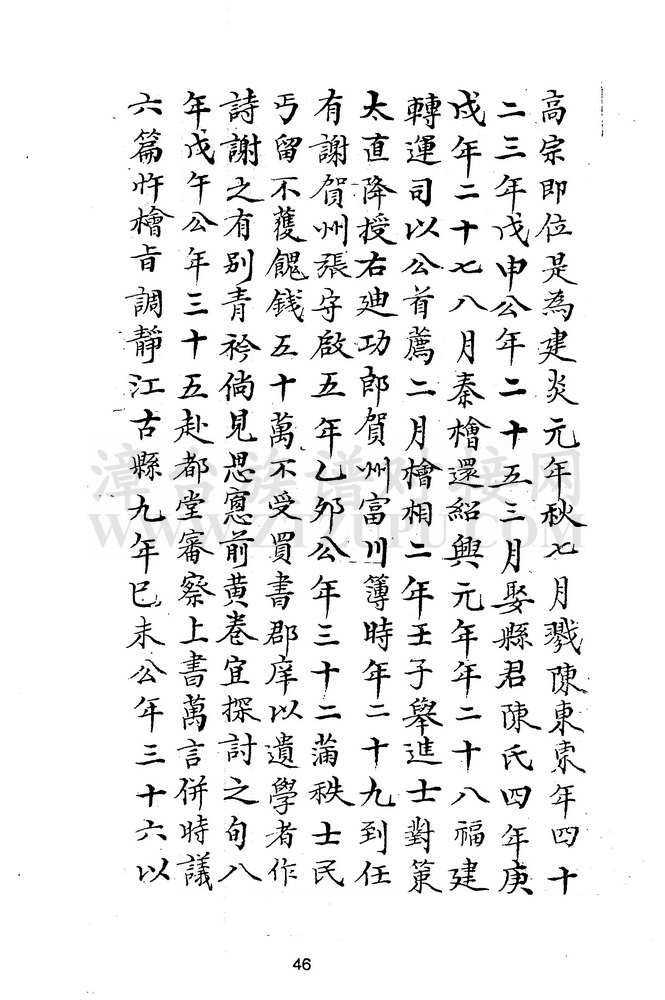 高宗即位是為建炎元年秋七月戮陳東東年四十
二三年戊申公年二十五三月娶縣君陳氏四年庚
戌年二十七八月秦檜還紹興元年年二十八福建
轉運司以公首薦二月檜相二年壬子舉進士對策
太直降授右迪功郎賀州富川簿時年二十九到任
有謝賀州張守啟五年乙夘公年三十二蒲秩士民
丐留不獲餽錢五十萬不受買書郡庠以遺學者作
詩謝之有别青衿倘見思寃前黄卷宜探討之句八
年戊午公年三十五赴都堂審察上書萬言併時議
六篇忤檜旨調靜江古縣九年巳未公年三十六以
漳台族谱对接网
WWW.ZTZUPU.COM
46